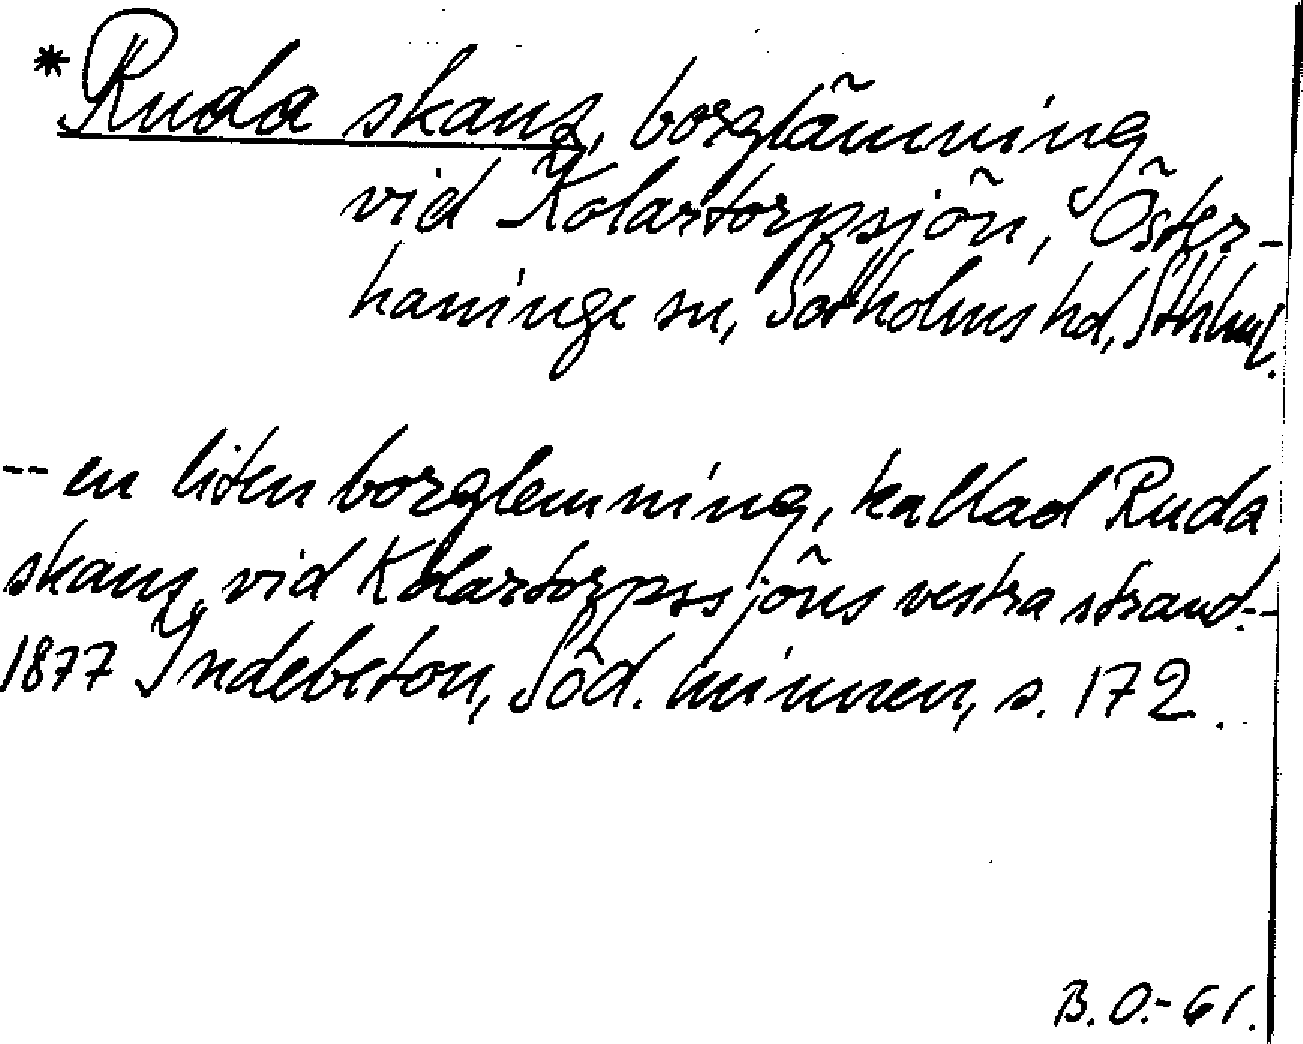 *Ruda skans, borglämning
vid Kolartorpsjön, Öster-
haninge sn, Sotholms hd, Sthlms l.
-- en liten borglemning, kallad Ruda
skans, vid Kolartorpssjöns vestra strand.-
1877 Indebetou, Söd. minnen, s. 172.
B.O.-61.